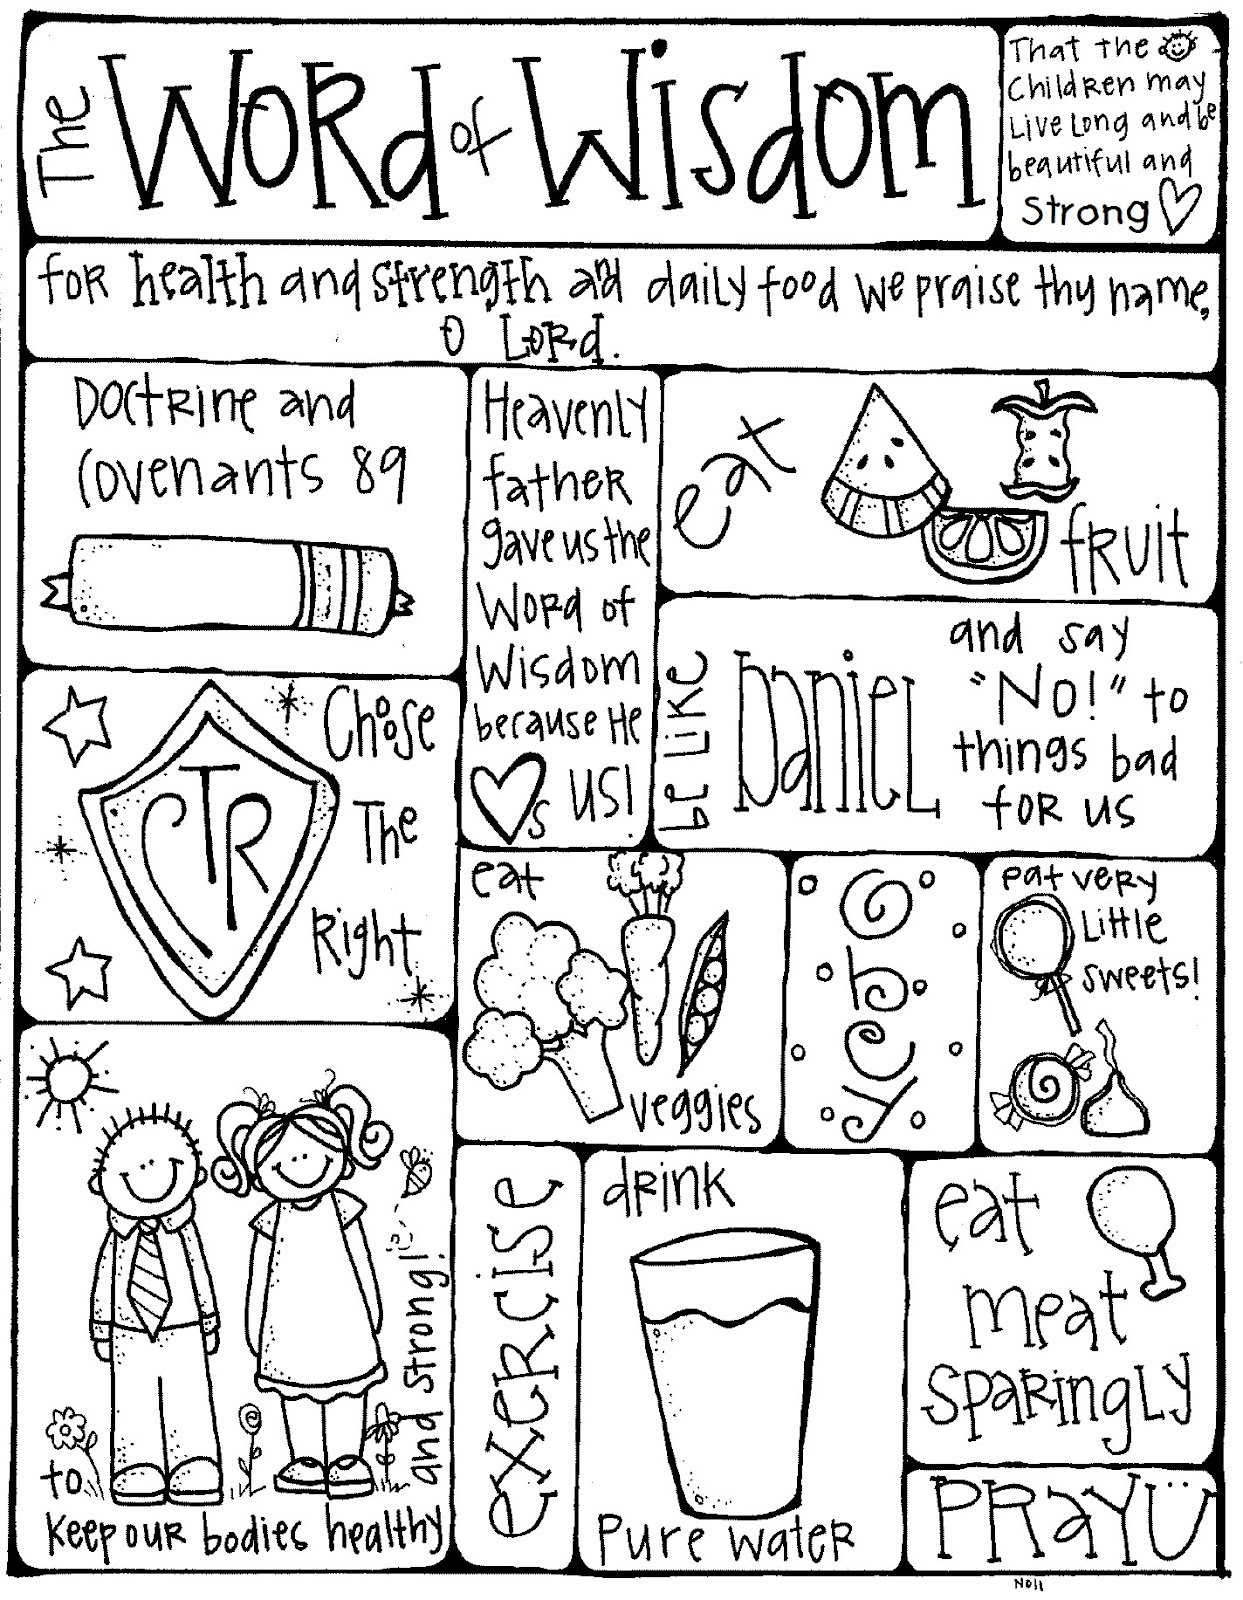 The Word of Wisdom
That the
Children may
Live Long and be
beautiful and
Strong
for health and strength and daily food we praise thy name,
O Lord.
Doctrine and
Covenants 89
Heavenly
father
gave us the
Word of
Wisdom
because He
s us!
eat
fruit
be like
Daniel
and say
"No!" to
things bad
for us
CTR
Choose
The
Right
eat
veggies
yebo
eat very
Little
sweets!
to
keep our bodies healthy
and strong!
exercise
drink
Pure water
eat
meat
sparingly
PRAY